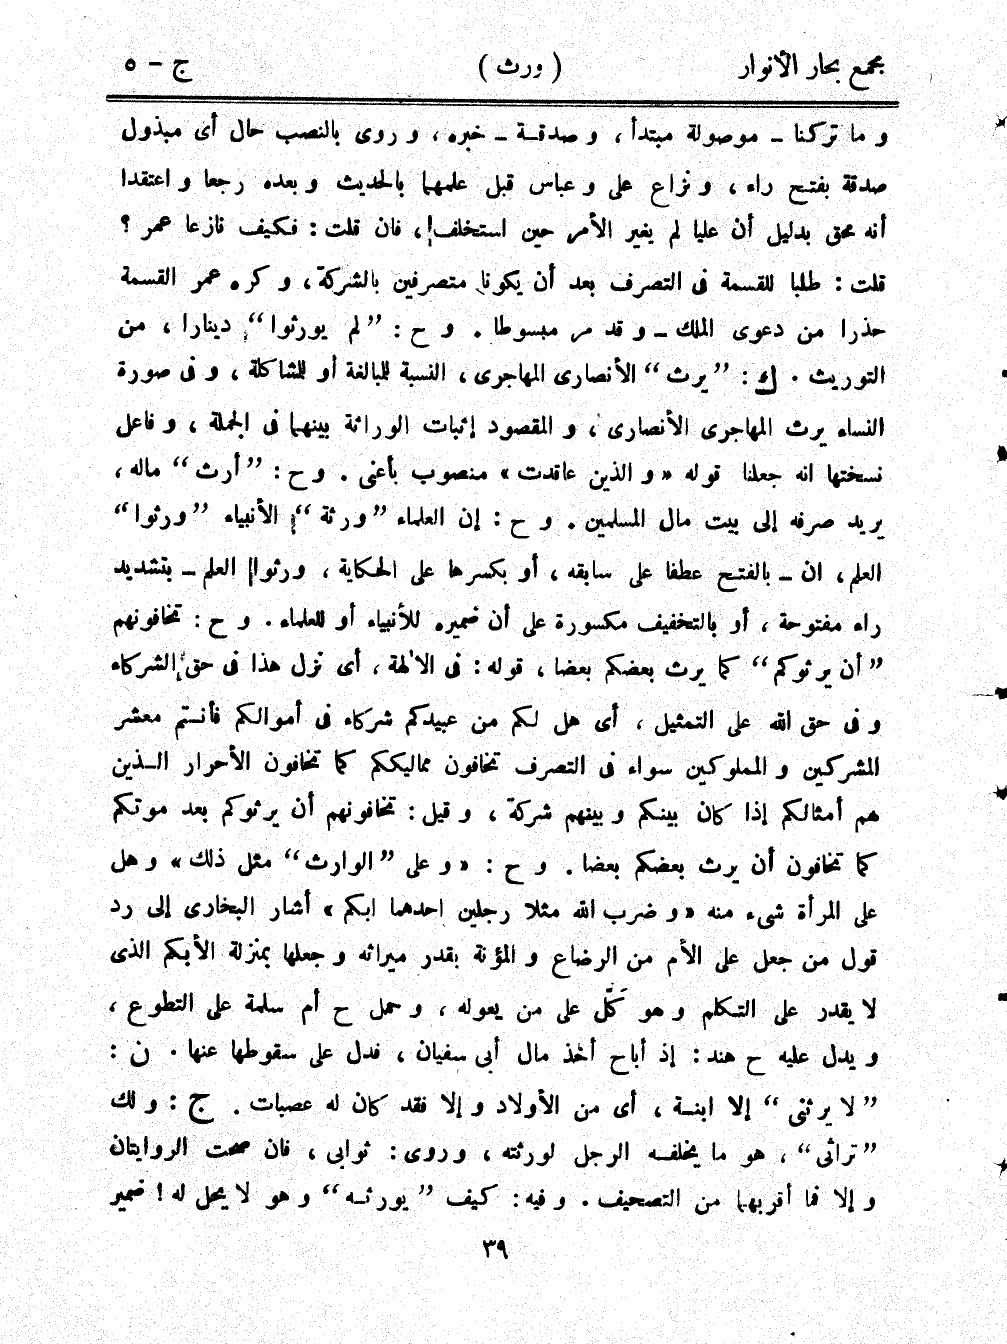 مجمع بحار الأنوار ( ورث ) ج – ٥
و ما تركنا ـ موصولة مبتدأ ، و صدقـة ـ خبره ، و روى بالنصب حال أى مبذول
صدقة بفتح راء ، و نزاع على و عباس قبل علمهما بالحديث و بعده رجعا و اعتقدا
أنه محق بدليل أن عليا لم يغير الأمر حين استخلف ، فان قلت : فكيف نازعا عمر ؟
قلت : طلبا للقسمة فى التصرف بعد أن يكونا متصرفين بالشركة ، و كره عمر القسمة
حذرا من دعوى الملك ـ و قد مر مبسوطا . و ح : ”لم يورثوا“ دينارا ، من
التوريث . ك : ”يرث“ الأنصارى المهاجرى ، النسبة للبالغة أو للشاكلة ، و فى صورة
النساء يرث المهاجرى الأنصارى ، و المقصود إثبات الوراثة بينهما فى الجملة ، و فاعل
نسختها انه جعلنا قوله « و الذين عاقدت » منصوب بأعنى . و ح : ”أرث“ ماله ،
يريد صرفه إلى بيت مال المسلمين . و ح : إن العلماء ”ورثة“ الأنبياء ”ورثوا“
العلم ، ان ـ بالفتح عطفا على سابقه ، أو بكسرها على الحكاية ، ورثوا العلم ـ بتشديد
راء مفتوحة ، أو بالتخفيف مكسورة على أن ضميره للأنبياء أو للعلماء . و ح : تخافونهم
”أن يرثوكم“ كما يرث بعضكم بعضا ، قوله : فى الآلهة ، أى نزل هذا فى حق الشركاء
و فى حق الله على التمثيل ، أى هل لكم من عبيدكم شركاء فى أموالكم فأنتم معشر
المشركين و المملوكين سواء فى التصرف تخافون مماليككم كما تخافون الأحرار الـذين
هم أمثالكم إذا كان بينكم و بينهم شركة ، و قيل : تخافونهم أن يرثوكم بعد موتكم
كما تخافون أن يرث بعضكم بعضا . و ح : « و على ”الوارث“ مثل ذلك » و هل
على المرأة شىء منه « و ضرب الله مثلا رجلين احدهما ابكم » أشار البخارى إلى رد
قول من جعل على الأم من الرضاع و المؤنة بقدر ميراثه و جعلها بمنزلة الأبكم الذى
لا يقدر على التكلم و هو كَلّ على من يعوله ، و حمل ح أم سلمة على التطوع ،
و يدل عليه ح هند : إذ أباح أخذ مال أبى سفيان ، فدل على سقوطها عنها . ن :
”لا يرثنى“ إلا ابنـة ، أى من الأولاد و إلا فقد كان له عصبات . ج : و لك
”تراثى“ ، هو ما يخلفـه الرجل لورثته ، و روى : ثوابى ، فان صحت الروايتان
و إلا فما أقربهما من التصحيف . و فيه : كيف ”يورثـه“ و هو لا يحل له ! ضمير
٣٩